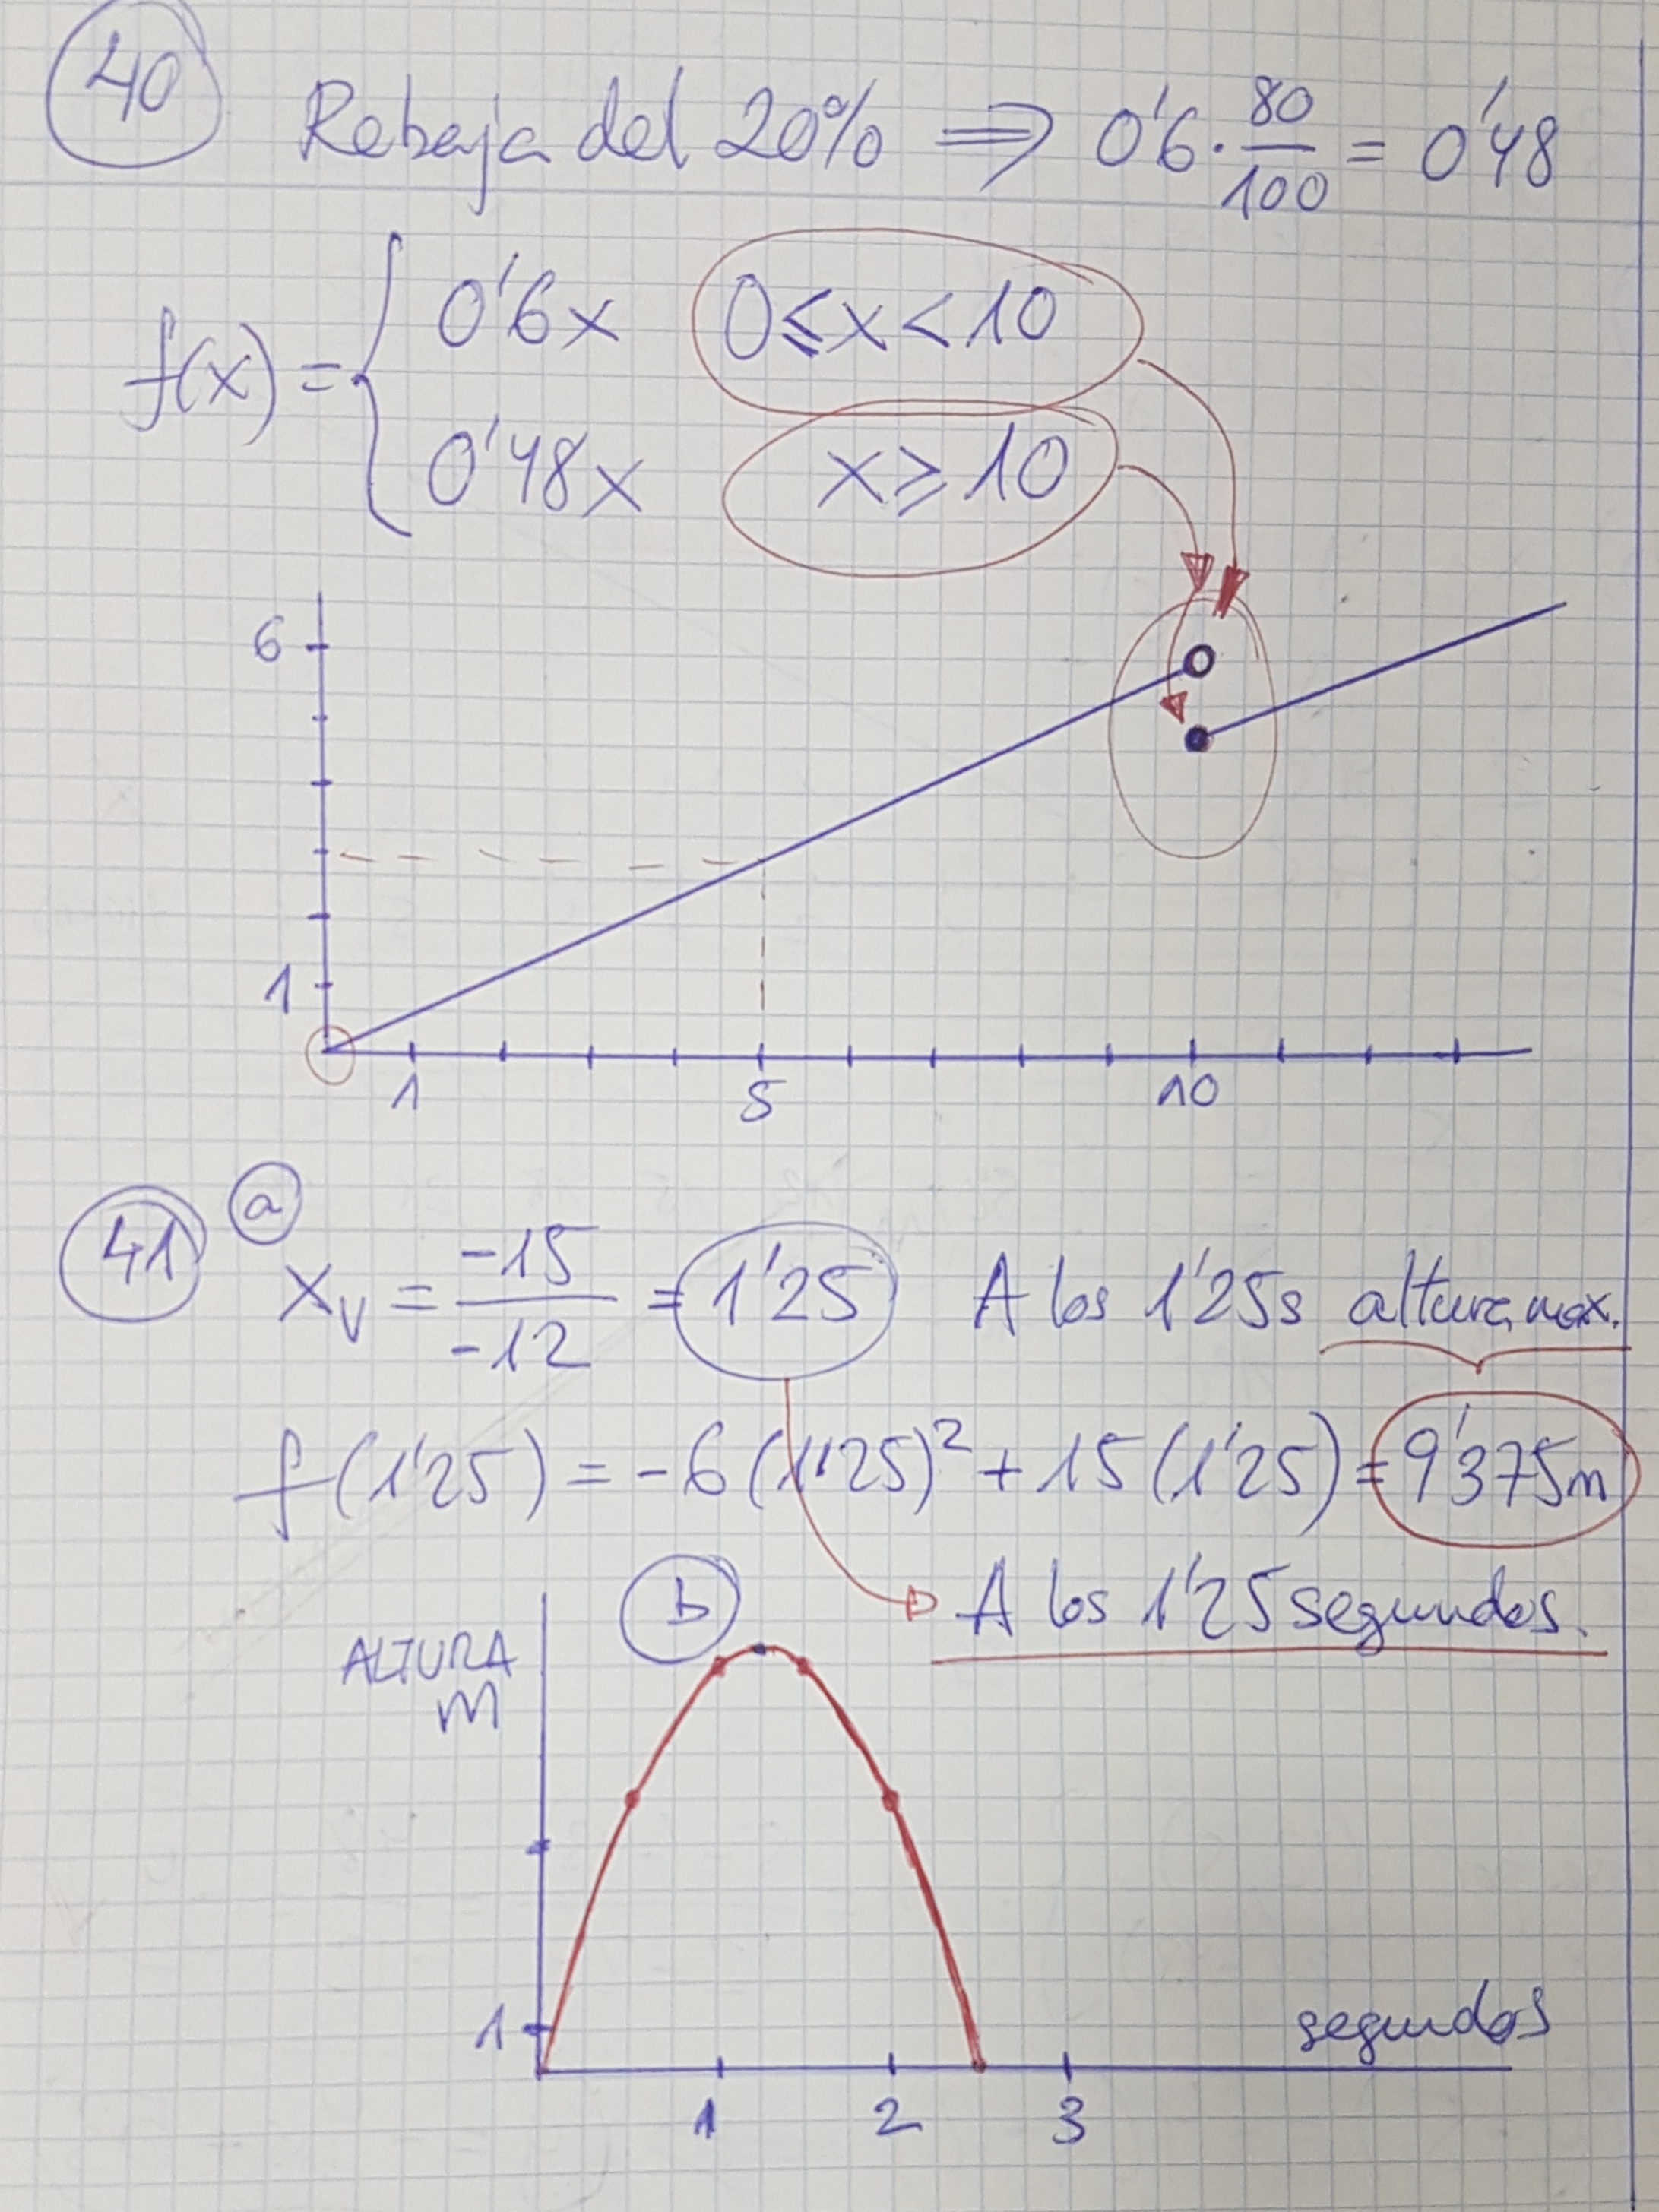 40
Rebaja del 20% ⟹ 0'6 · 80/100 = 0'48
f(x) = { 0'6x 0 ≤ x < 10
0'48x x ≥ 10
6
1
1 5 10
41 a
x_v = -15/-12 = 1'25 A los 1'25s altura max.
f(1'25) = -6(1'25)² + 15(1'25) = 9'375m
b A los 1'25 segundos.
ALTURA
m
1
segundos
1 2 3